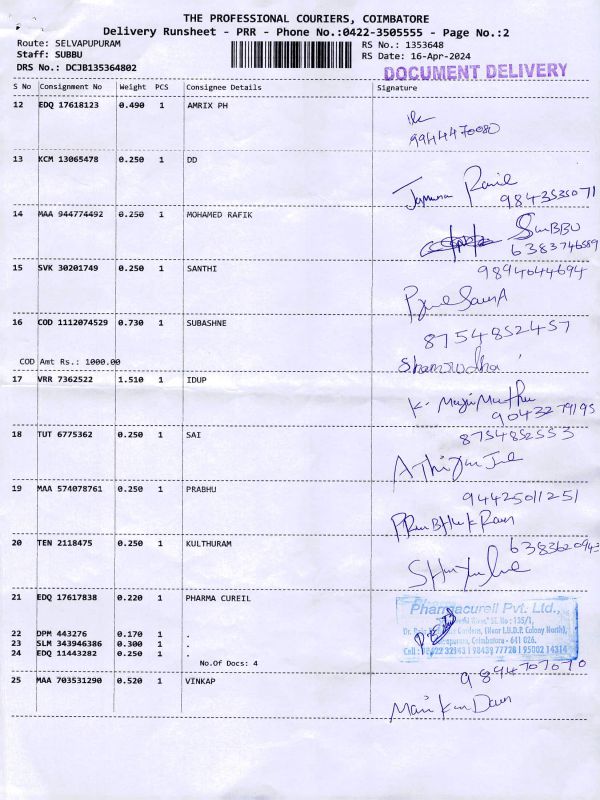 THE PROFESSIONAL COURIERS, COIMBATORE
Delivery Runsheet - PRR - Phone No.:0422-3505555 - Page No.:2
Route: SELVAPUPURAM
Staff: SUBBU
DRS No.: DCJB135364802
RS No.: 1353648
RS Date: 16-Apr-2024
DOCUMENT DELIVERY
S No Consignment No Weight PCS Consignee Details Signature
12 EDQ 17618123 0.490 1 AMRIX PH
9944470080
13 KCM 13065478 0.250 1 DD
9843535071
14 MAA 944774492 0.250 1 MOHAMED RAFIK
SUBBU
6383746589
15 SVK 30201749 0.250 1 SANTHI
9894644694
16 COD 1112074529 0.730 1 SUBASHNE
8754852457
COD Amt Rs.: 1000.00
17 VRR 7362522 1.510 1 IDUP
9043279195
18 TUT 6775362 0.250 1 SAI
8754852553
19 MAA 574078761 0.250 1 PRABHU
9442501251
20 TEN 2118475 0.250 1 KULTHURAM
6383620943
21 EDQ 17617838 0.220 1 PHARMA CUREIL
Pharmacureil Pvt. Ltd.,
Gardens, (Near I.N.D.P. Colony North),
Coimbatore - 641 026.
22 DPM 443276 0.170 1 .
23 SLM 343946386 0.300 1 .
24 EDQ 11443282 0.250 1 .
No.Of Docs: 4
9894707070
25 MAA 703531290 0.520 1 VINKAP